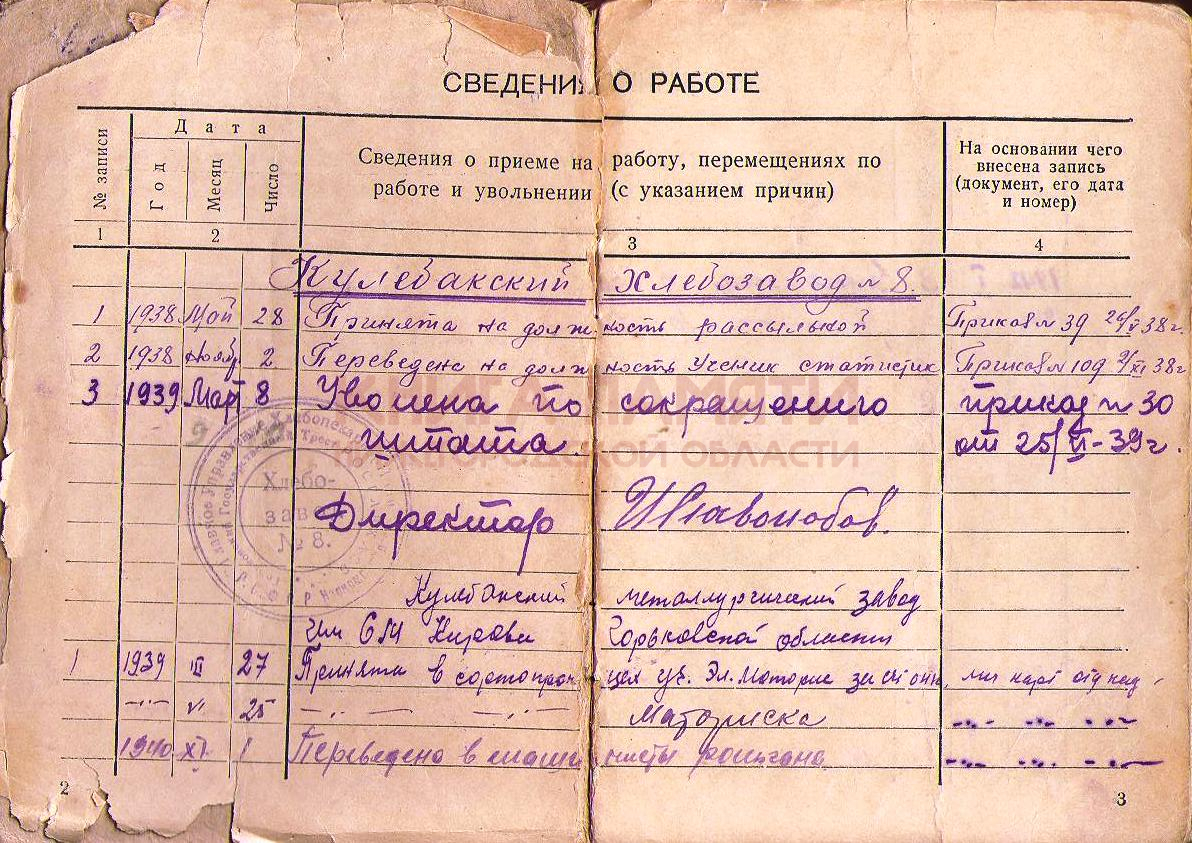 СВЕДЕНИЯ О РАБОТЕ
№ записи
Дата
Год
Месяц
Число
Сведения о приеме на работу, перемещениях по
работе и увольнении (с указанием причин)
На основании чего
внесена запись
(документ, его дата
и номер)
1 2 3 4
Кулебакский Хлебозавод № 8.
1 1938 Май 28 Принята на должность рассыльной Приказ № 39 38г.
2 1938 Ноябр 2 Переведена на должность Ученик статистик Приказ № 109 XI 38г
КНИГА ПАМЯТИ
НИЖЕГОРОДСКОЙ ОБЛАСТИ
3 1939 Март 8 Уволена по сокращению приказ № 30
штата. от 25/VI-39г.
Хлебо-
завод
№ 8.
Директор
Кулебакский металлургический завод
им Кирова Горьковской области
1 1939 III 27 Принята в сортопрок цех Эл. Моторис
—·— VI 25 —·— —·— Моториска
1940 XI 1 Переведена в машинисты рольгана
2
3